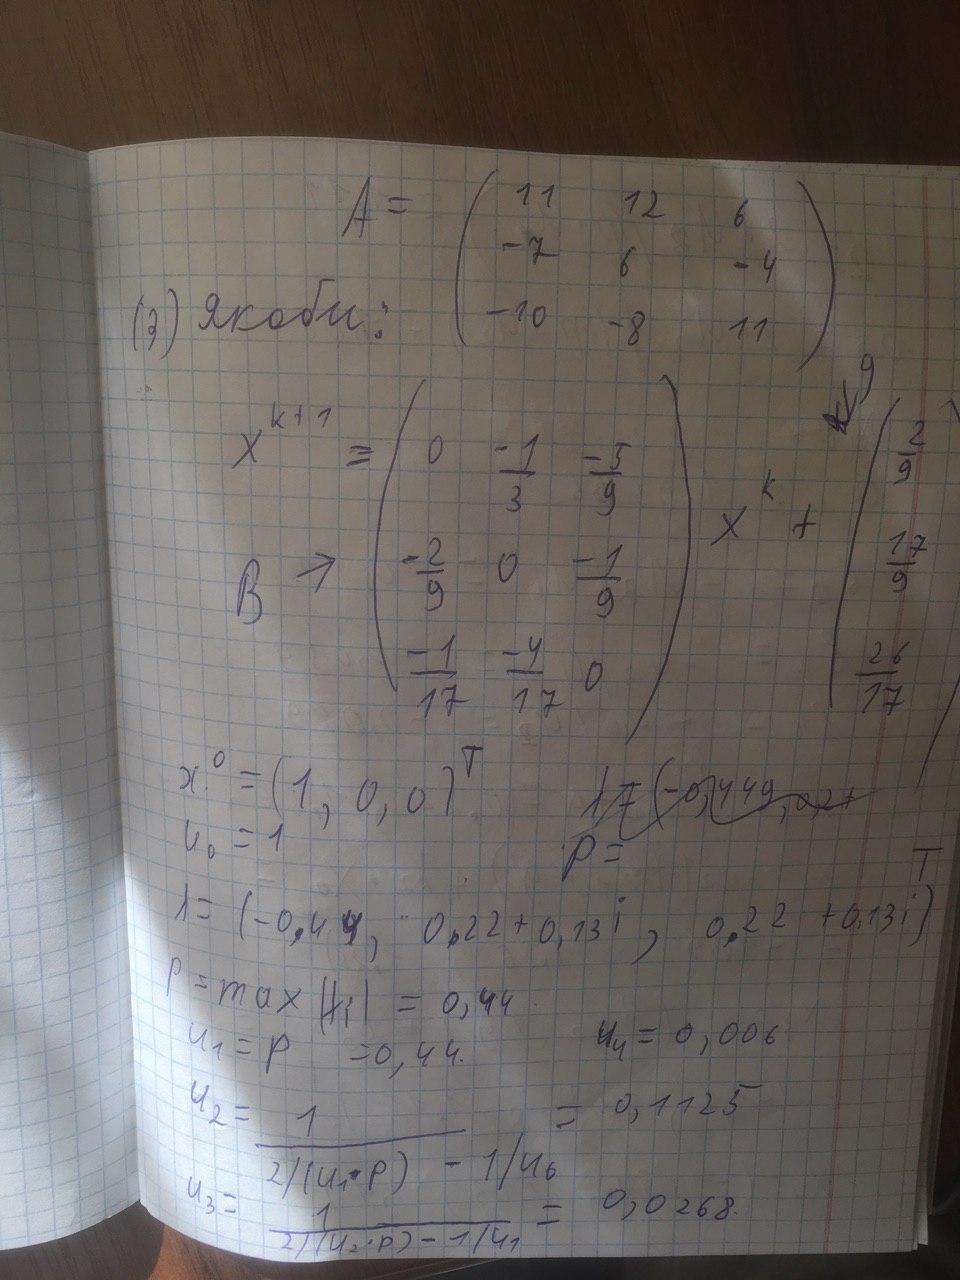 A = ( 11 12 6
-7 6 -4
-10 -8 11 )
(3) Якоби:
x^{k+1} = ( 0 -1/3 -5/9
B → -2/9 0 -1/9
-1/17 -4/17 0 ) x^k + ( 2/9
17/9
26/17 )
g
x^0 = (1, 0, 0)^T
u_0 = 1
ρ =
λ = (-0,44, 0,22 + 0,13i, 0,22 + 0,13i)^T
ρ = max |λ_i| = 0,44
u_1 = ρ = 0,44. u_4 = 0,006
u_2 = 1 / (2/(u_1·ρ) - 1/u_0) = 0,1125
u_3 = 1 / (2/(u_2·ρ) - 1/u_1) = 0,0268.